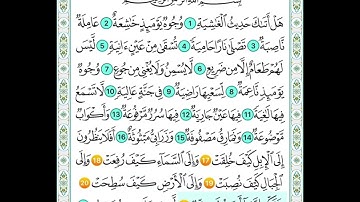 هَلْ أَتَىٰكَ حَدِيثُ ٱلْغَٰشِيَةِ ١ وُجُوهٌ يَوْمَئِذٍ خَٰشِعَةٌ ٢ عَامِلَةٌ
نَّاصِبَةٌ ٣ تَصْلَىٰ نَارًا حَامِيَةً ٤ تُسْقَىٰ مِنْ عَيْنٍ ءَانِيَةٍ ٥ لَّيْسَ
لَهُمْ طَعَامٌ إِلَّا مِن ضَرِيعٍ ٦ لَّا يُسْمِنُ وَلَا يُغْنِى مِن جُوعٍ ٧ وُجُوهٌ
يَوْمَئِذٍ نَّاعِمَةٌ ٨ لِّسَعْيِهَا رَاضِيَةٌ ٩ فِى جَنَّةٍ عَالِيَةٍ ١٠ لَّا تَسْمَعُ
فِيهَا لَٰغِيَةً ١١ فِيهَا عَيْنٌ جَارِيَةٌ ١٢ فِيهَا سُرُرٌ مَّرْفُوعَةٌ ١٣ وَأَكْوَابٌ
مَّوْضُوعَةٌ ١٤ وَنَمَارِقُ مَصْفُوفَةٌ ١٥ وَزَرَابِىُّ مَبْثُوثَةٌ ١٦ أَفَلَا يَنظُرُونَ
إِلَى ٱلْإِبِلِ كَيْفَ خُلِقَتْ ١٧ وَإِلَى ٱلسَّمَآءِ كَيْفَ رُفِعَتْ ١٨ وَإِلَى
ٱلْجِبَالِ كَيْفَ نُصِبَتْ ١٩ وَإِلَى ٱلْأَرْضِ كَيْفَ سُطِحَتْ ٢٠